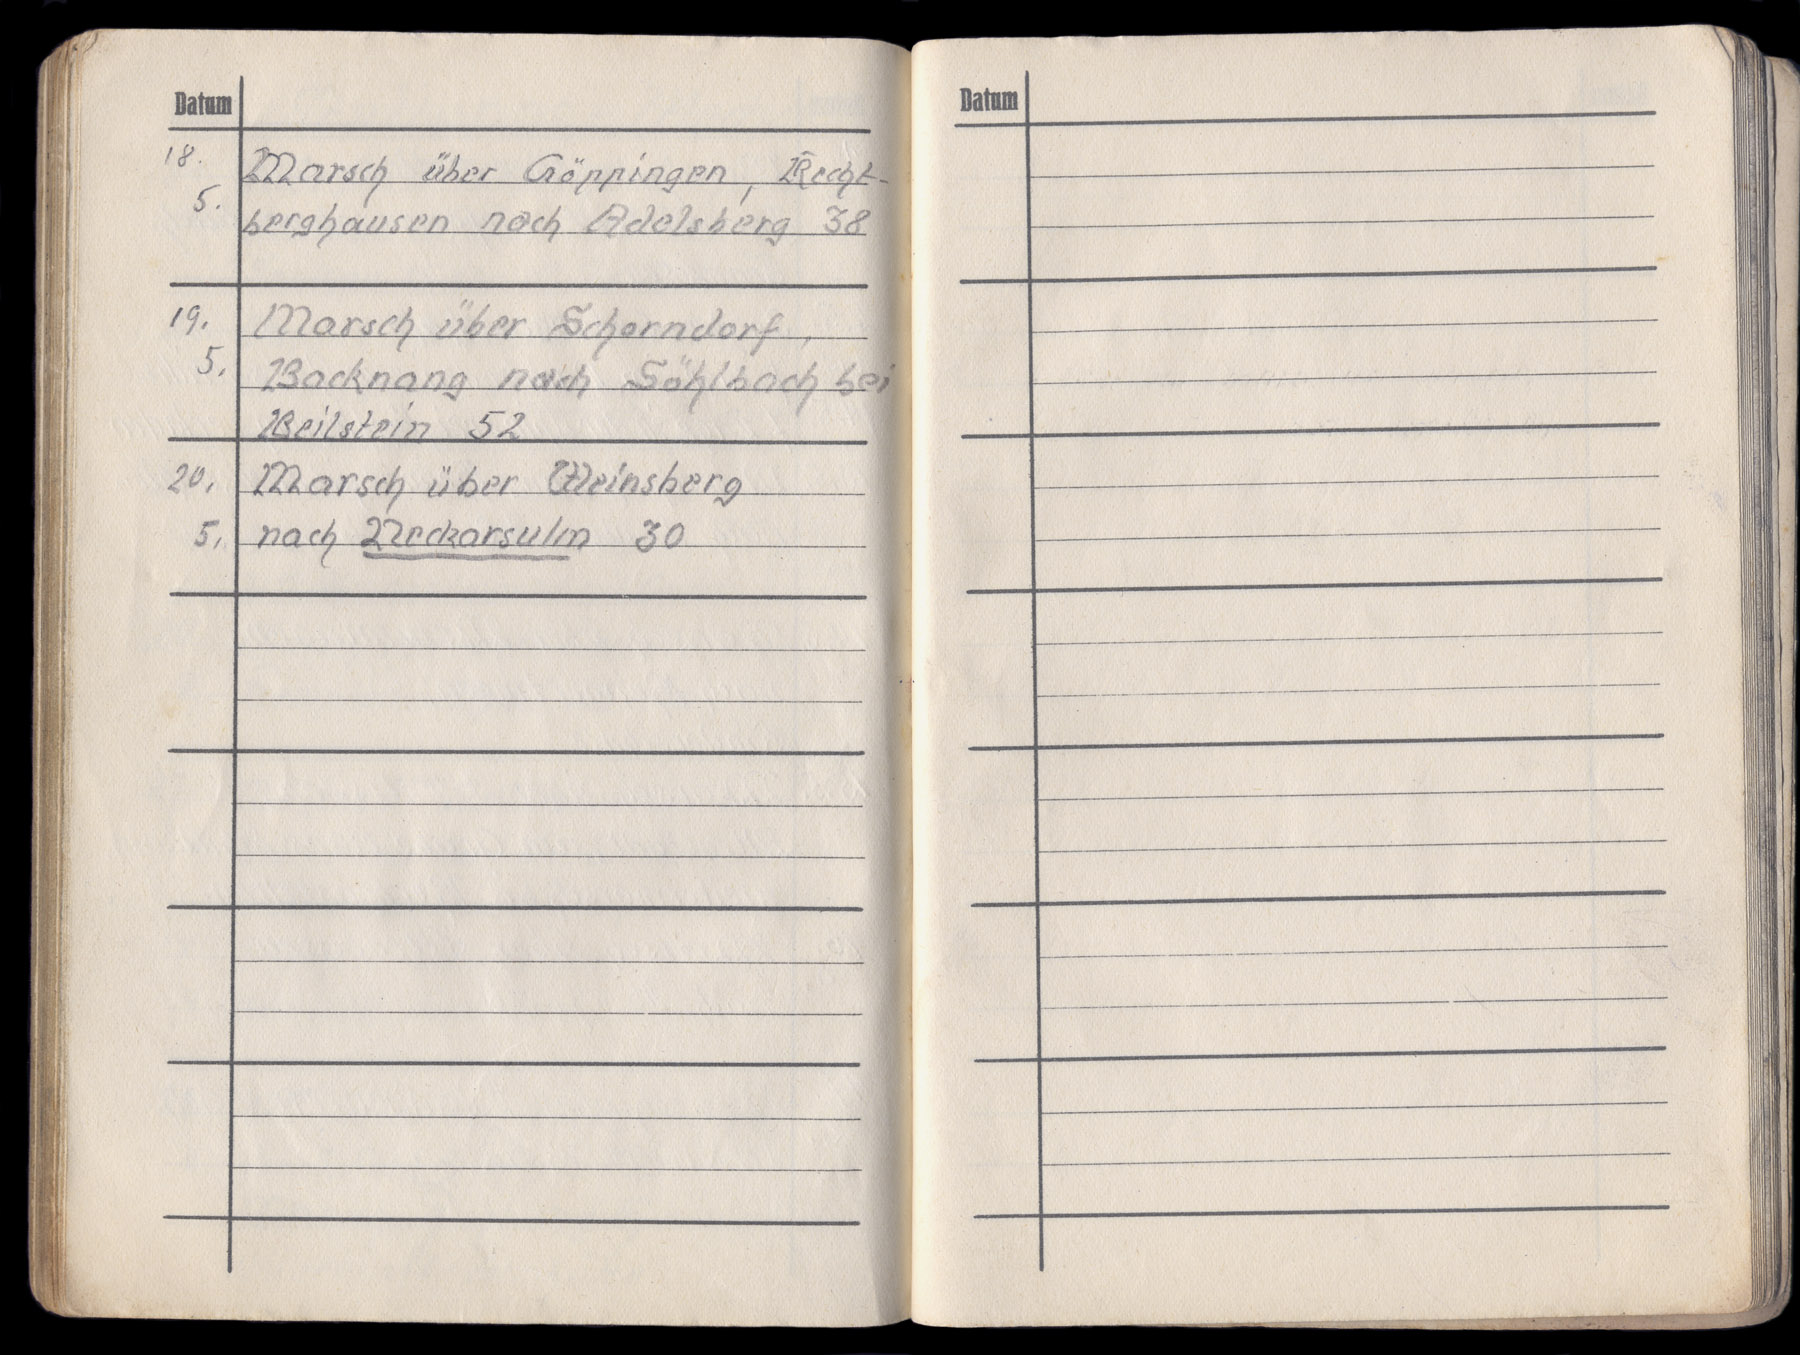 Datum
18. Marsch über Göppingen, Recht-
5. berghausen nach Adelsberg 38
19. Marsch über Schorndorf,
5. Backnang nach Söhlbach bei
Beilstein 52
20. Marsch über Weinsberg
5. nach Neckarsulm 30
Datum